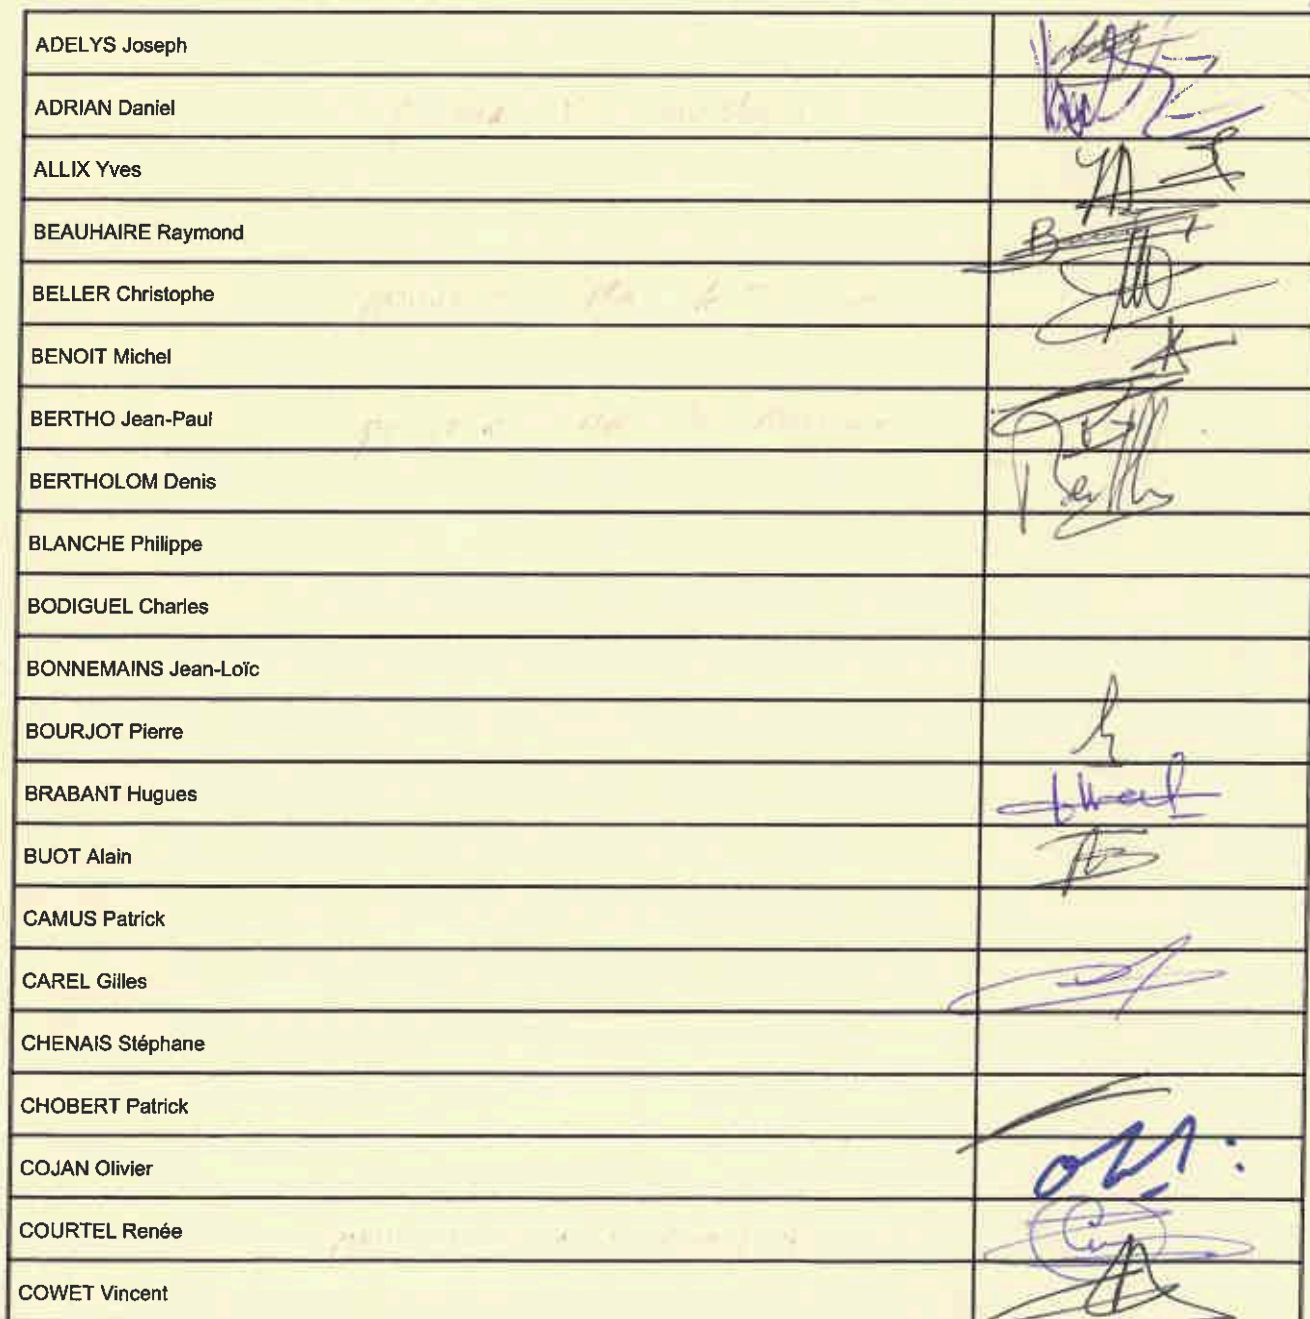 ADELYS Joseph
ADRIAN Daniel
ALLIX Yves
BEAUHAIRE Raymond
BELLER Christophe
BENOIT Michel
BERTHO Jean-Paul
BERTHOLOM Denis
BLANCHE Philippe
BODIGUEL Charles
BONNEMAINS Jean-Loïc
BOURJOT Pierre
BRABANT Hugues
BUOT Alain
CAMUS Patrick
CAREL Gilles
CHENAIS Stéphane
CHOBERT Patrick
COJAN Olivier
COURTEL Renée
COWET Vincent